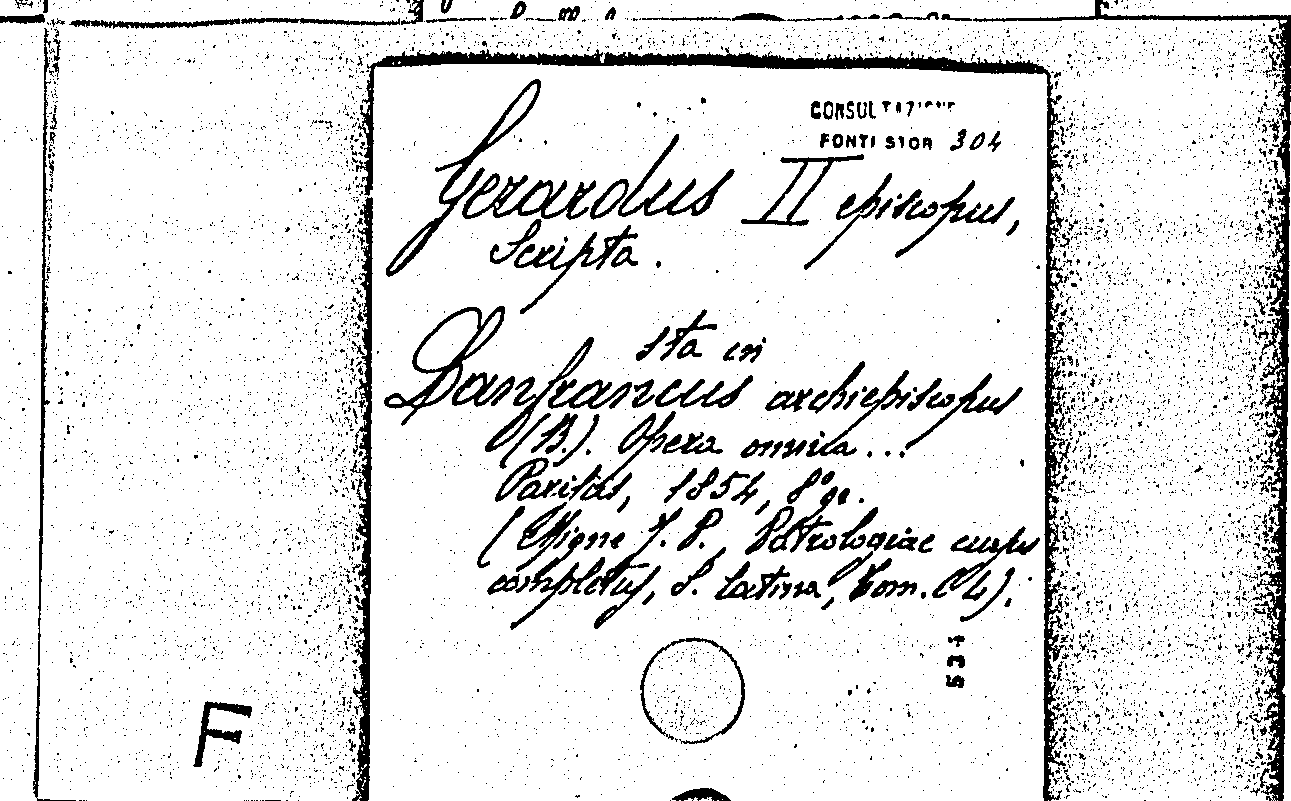 CONSULTAZIONE
FONTI STOR 304
Gerardus II episcopus,
Scripta.
sta in
Lanfrancus archiepiscopus
(B.). Opera omnia...
Parisiis, 1854, 8° gr.
(Migne J. P., Patrologiae cursus
completus, S. latina, tom. CL).
534
F